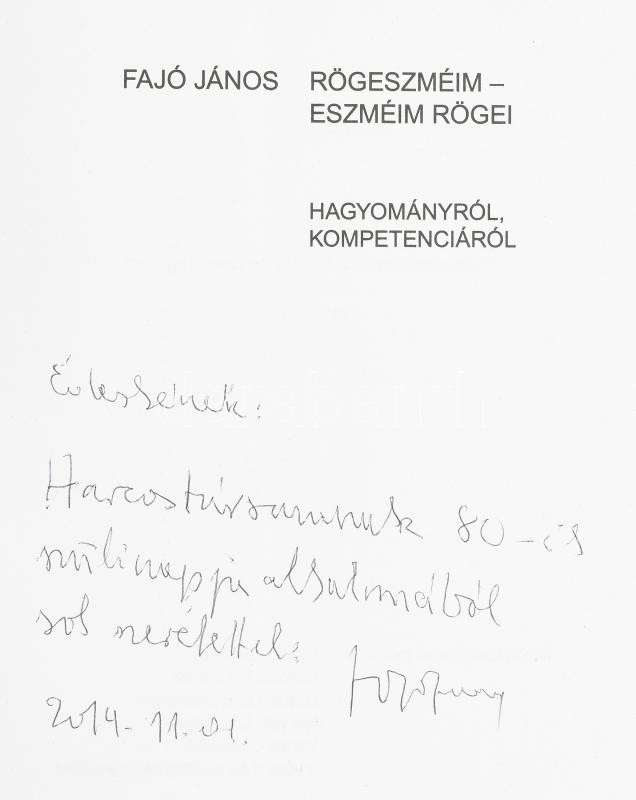 FAJÓ JÁNOS RÖGESZMÉIM –
ESZMÉIM RÖGEI
HAGYOMÁNYRÓL,
KOMPETENCIÁRÓL
Harcostársamnak 80-ik
szülinapja alkalmából
sok szeretettel:
2014-11.01.